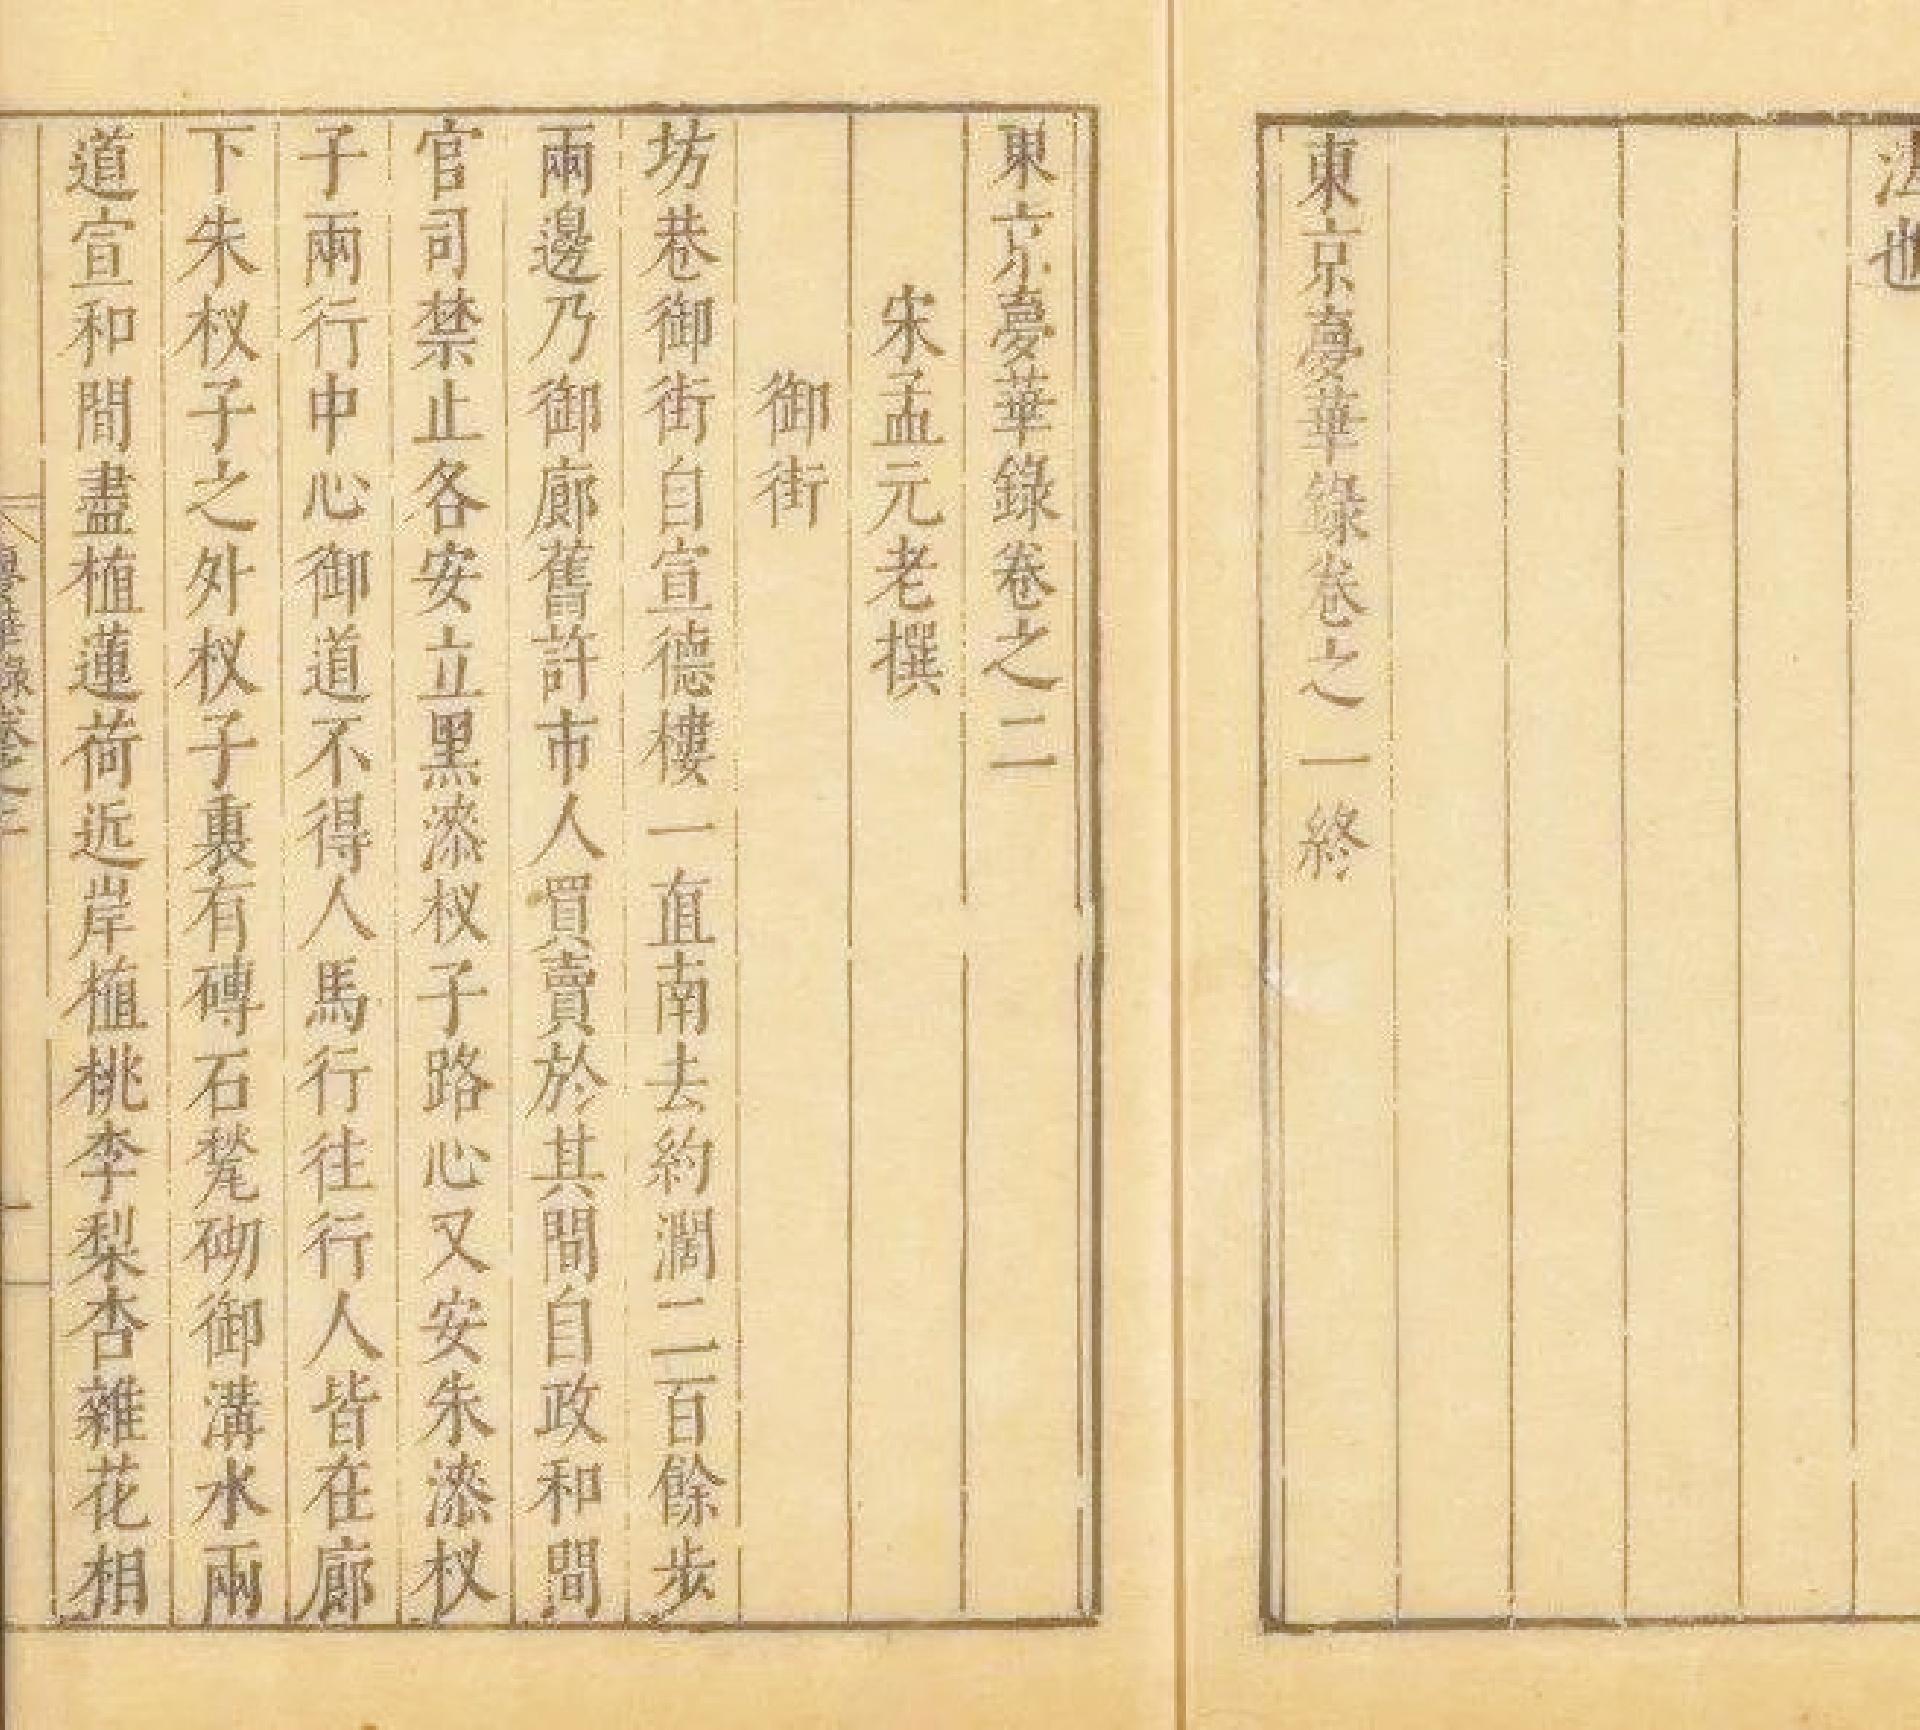 法也
東京夢華錄卷之一終
東京夢華錄卷之二
宋孟元老撰
御街
坊巷御街自宣德樓一直南去約濶二百餘步
兩邊乃御廊舊許市人買賣於其間自政和間
官司禁止各安立黑漆杈子路心又安朱漆杈
子兩行中心御道不得人馬行往行人皆在廊
下朱杈子之外杈子裏有磚石甃砌御溝水兩
道宣和間盡植蓮荷近岸植桃李梨杏雜花相
夢華錄卷之二
一